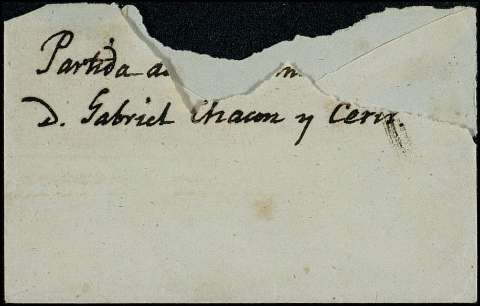 Partida de
D. Gabriel Chacon y Cero.